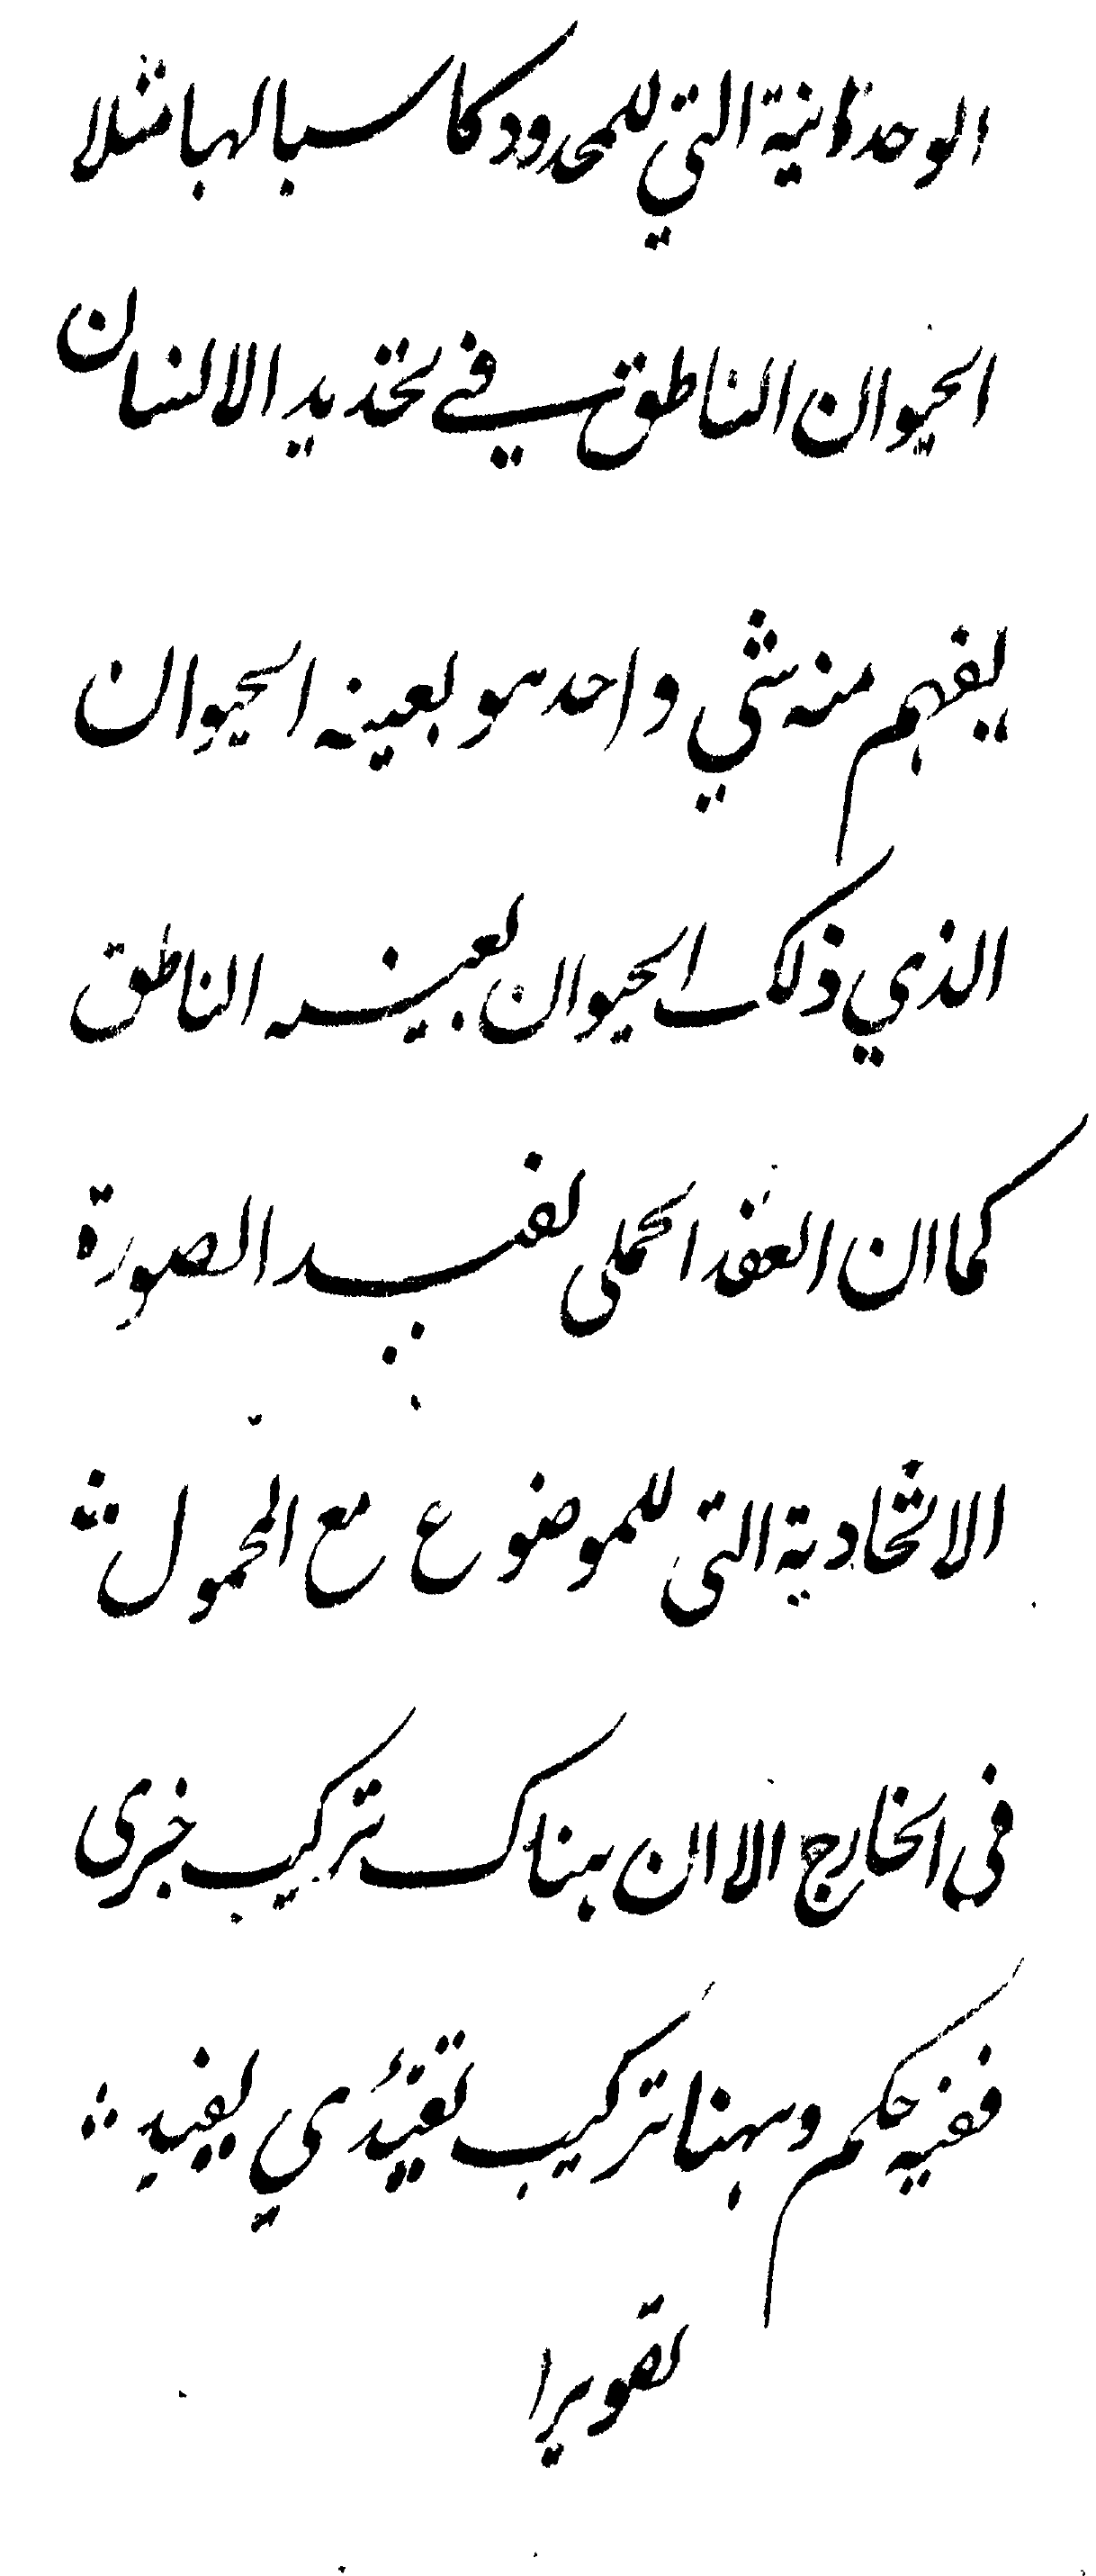 الوحدانية التي للمحدود كاسبا لها مثلا
الحيوان الناطق في تحديد الانسان
يفهم منه شي واحد هو بعينه الحيوان
الذي ذلك الحيوان بعينه الناطق
كما ان العقد الحملى يفيد الصورة
الاتحادية التى للموضوع مع المحمول
فى الخارج الا ان هناك تركيب خبرى
ففيه حكم وههنا تركيب تقييدي يفيد
تصويرا